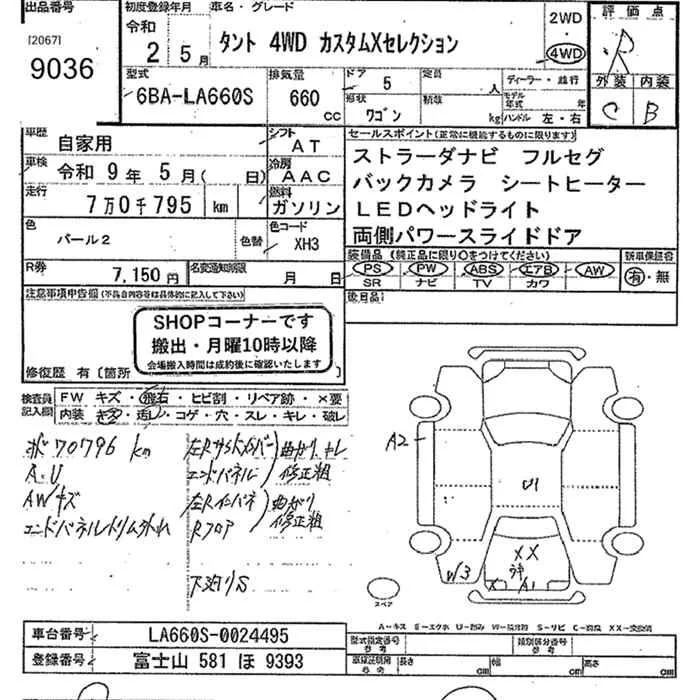 出品番号
[2067]
9036
初度登録年月
令和
2 5月
車名・グレード
タント 4WD カスタムXセレクション
2WD
4WD
評価点
R
外装 内装
C B
型式
6BA-LA660S
排気量
660 CC
ドア 5
形状 ワゴン
定員 人
積載 kg
ディーラー・並行
モデル年式 年
ハンドル 左・右
車歴 自家用
シフト AT
車検 令和 9年 5月( 日)
冷房 AAC
走行 7万0千795 km
燃料 ガソリン
色 パール2
色替
色コード XH3
R券 7,150円
名変通知期限 月 日
セールスポイント(正常に機能するものに限ります)
ストラーダナビ フルセグ
バックカメラ シートヒーター
LEDヘッドライト
両側パワースライドドア
装備品 (純正品に限り○をつけてください)
PS PW ABS エアB AW
SR ナビ TV カワ
新車保証書
有・無
後日品
注意事項申告欄(不具合内容等は具体的に記入して下さい)
SHOPコーナーです
搬出・月曜10時以降
会場搬入時間は成約後に確認いたします
修復歴 有〔箇所 〕
検査員記入欄
FW キズ・飛石・ヒビ割・リペア跡・×要
内装 キズ・汚レ・コゲ・穴・スレ・キレ・破レ
70796 km
A.U
AWキズ
エンドパネルトリム外れ
エンドパネル
修正粗
曲がり
修正粗
Rフロア
下廻りS
A2
U1
XX
W3
A1
スペア
A-キズ E-エクボ U-凹み W-波分訂 S-サビ C-腐蝕 XX-交換済
車台番号 LA660S-0024495
登録番号 富士山 581 ほ 9393
型式指定番号
参考
類別区分番号
参考
長さ cm 幅 cm 高さ cm